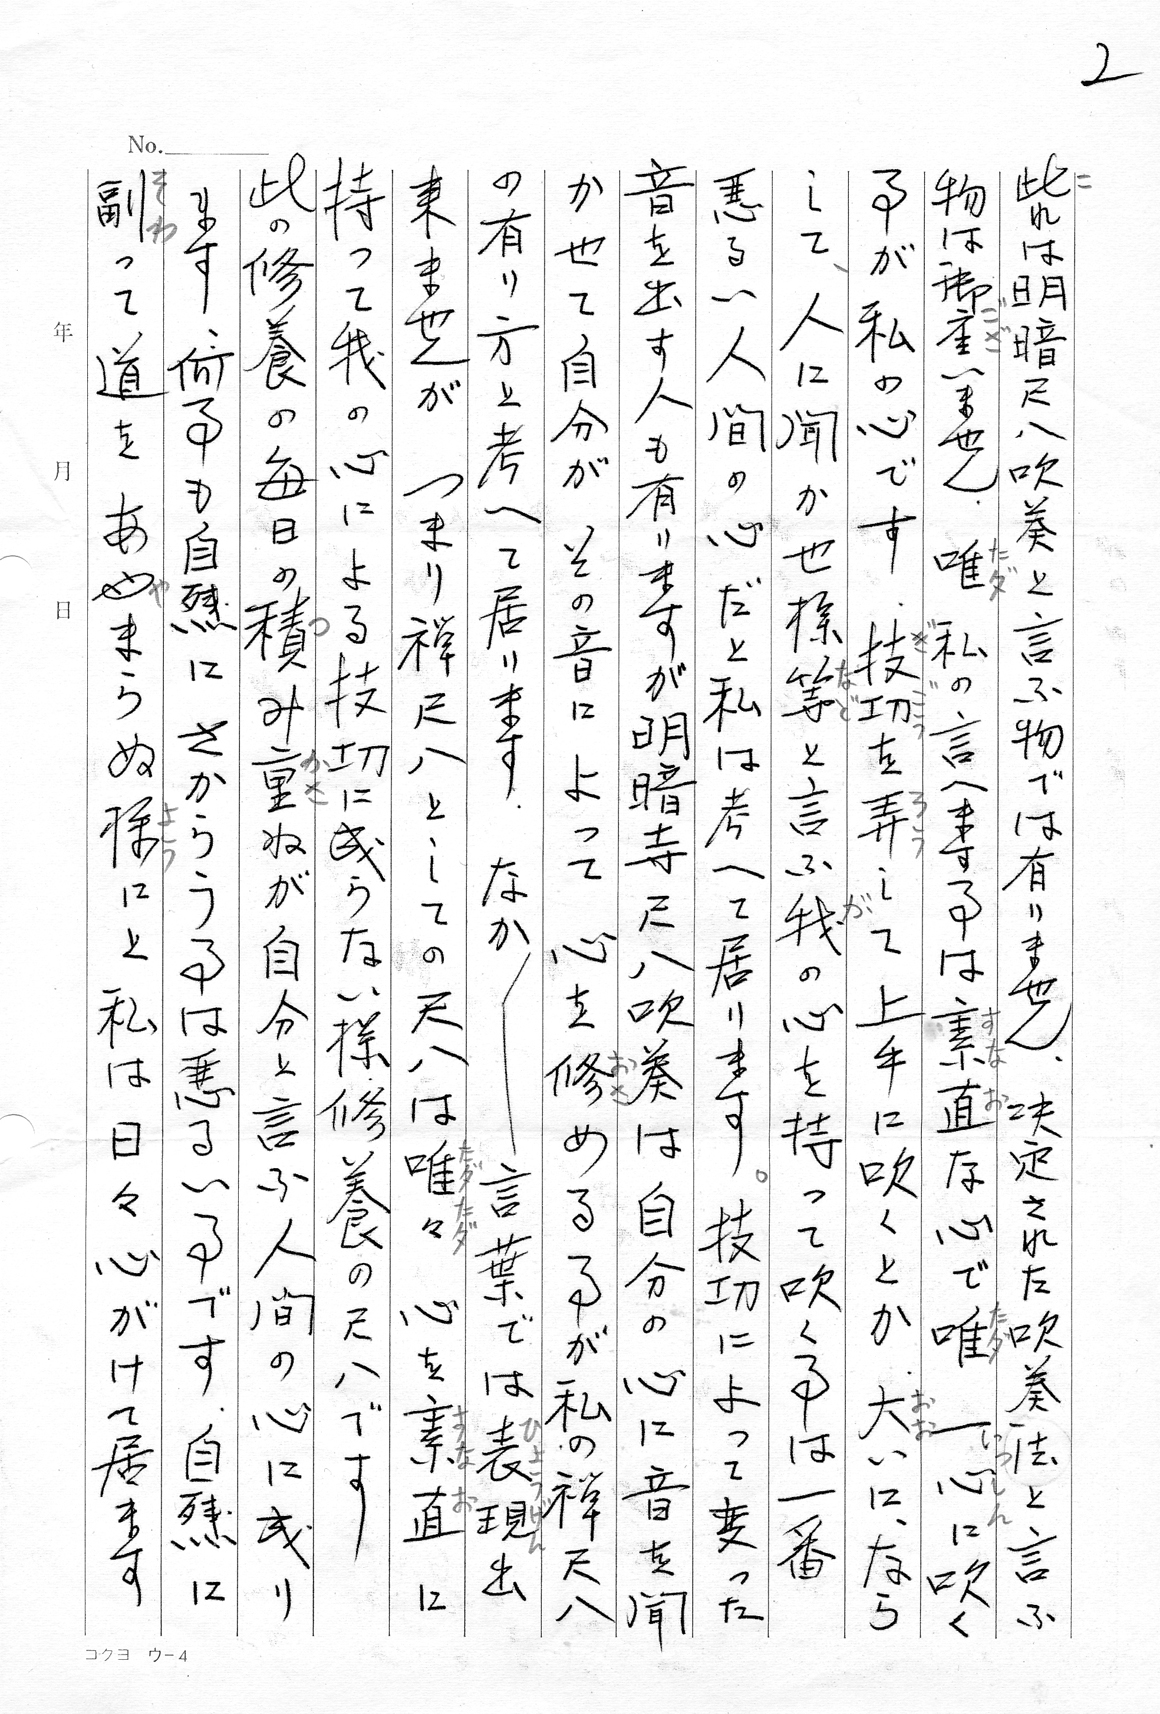 2
No.
年 月 日
此れは明暗尺八吹奏と言ふ物では有りません、決定された吹奏法と言ふ
物は御座いません. 唯 私の言へます事は素直な心で唯 一心に吹く
事が私の心です. 技功を弄して上手に吹くとか. 大いに、なら
して、人に聞かせ様等と言ふ我の心を持って吹く事は一番
悪るい人間の心だと私は考へて居ります。技功によって変った
音を出す人も有りますが明暗寺尺八吹奏は自分の心に音を聞
かせて自分が その音によって 心を修める事が私の禅尺八
の有り方と考へて居ります. なか――言葉では表現出
来ませんが つまり禅尺八としての尺八は唯々 心を素直 に
持って我の心による技功に成らない様.修養の尺八です
此の修養の毎日の積み重ねが自分と言ふ人間の心に成り
ます、何事も自然に さからう事は悪るい事です. 自然に
副って道を あやまらぬ様にと 私は日々心がけて居ます
こ
ござ
ただ
すなお
ただ
いっしん
ぎこう
ろう
おお
など
が
おさ
ひょうげん
ただただ
すなお
つ
かさ
そわ
や
よう
コクヨ ウ-4